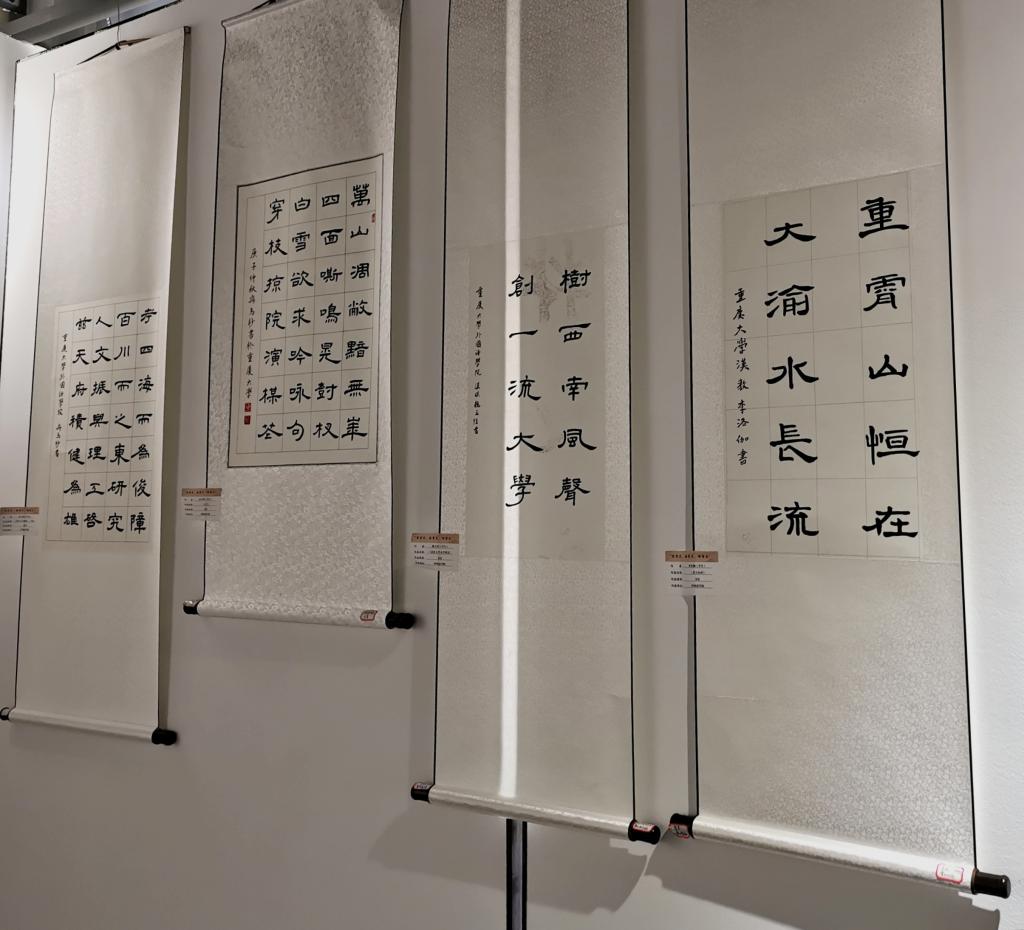 重霄山恒在
大渝水長流
重庆大學漢教 李洛伽書
樹西南風聲
創一流大學
重庆大學外國語學院
萬山凋敝黯無華
四面嘶鳴晃樹杈
白雪欲求吟咏句
穿枝掠院演梅花
庚子仲秋 抄書於重庆大學
考四海而為俊障
百川而之東研究
人文振興理工啓
兹天府積健為雄
重庆大學外國語學院